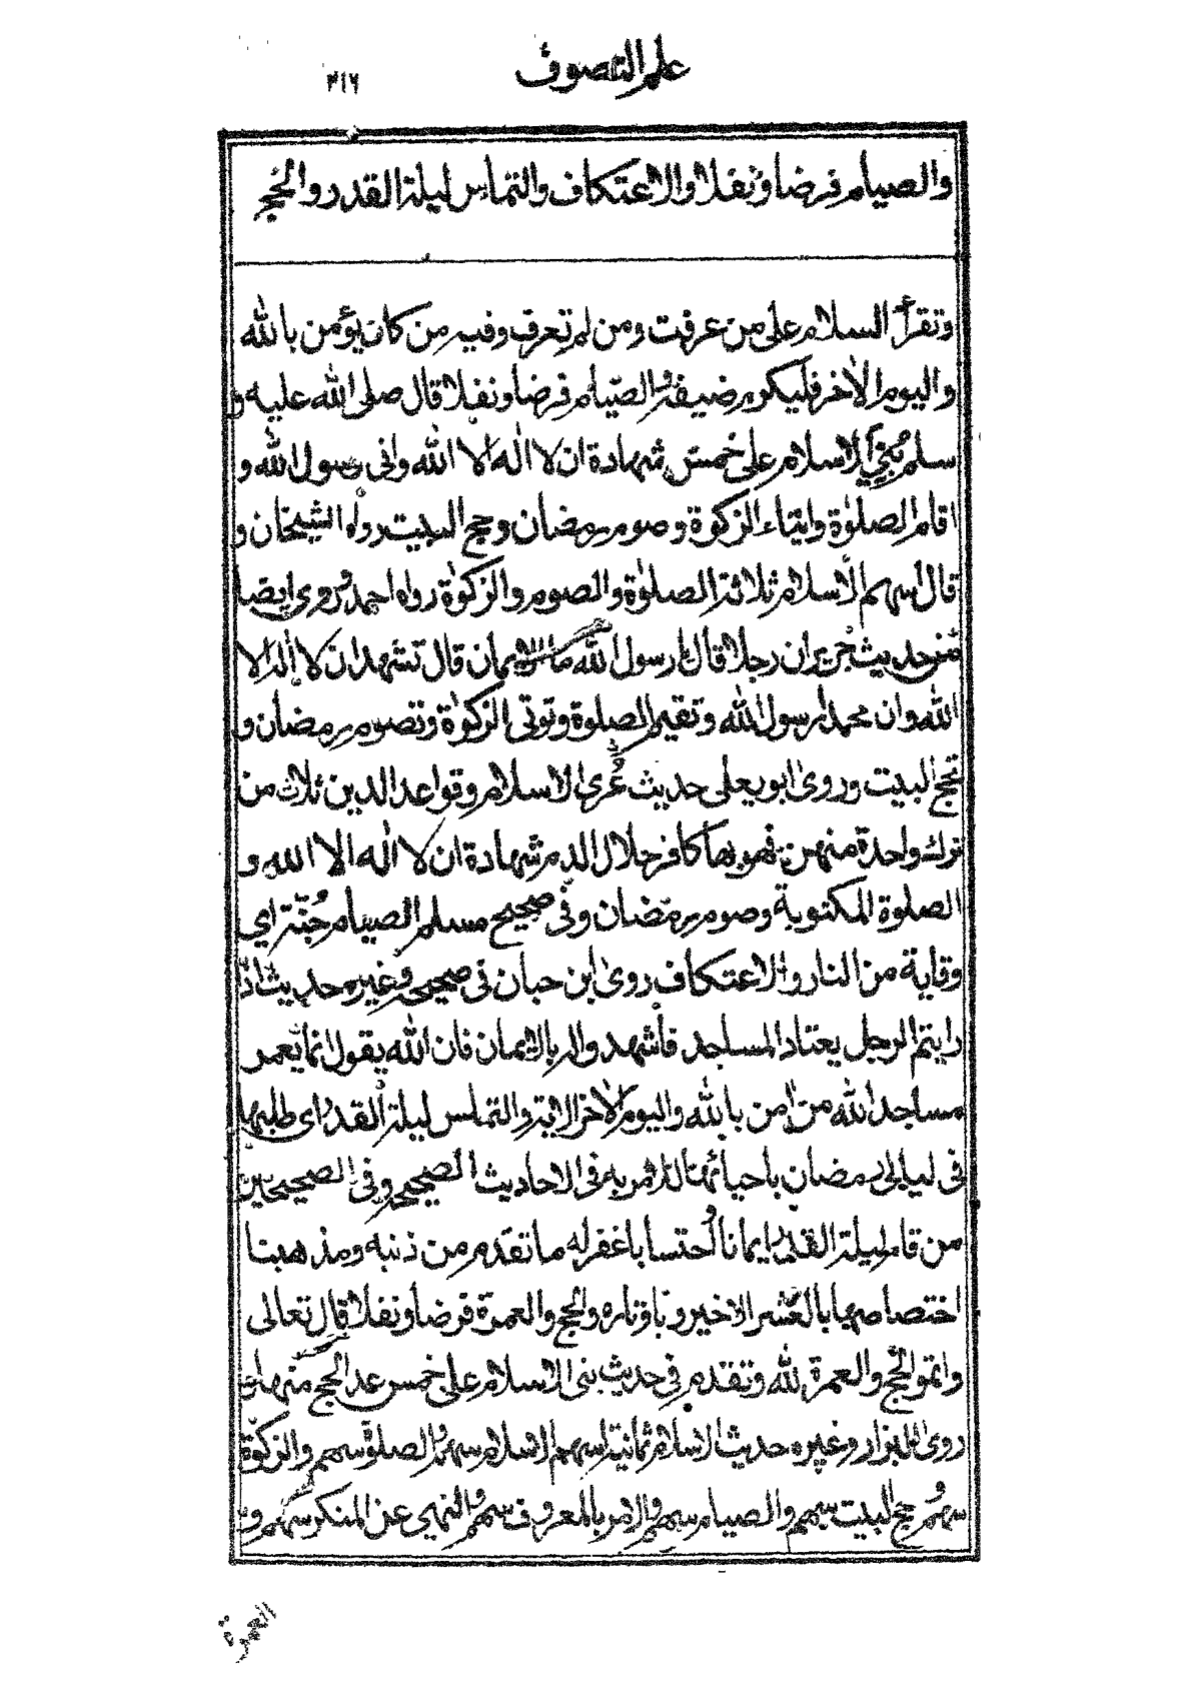 علم التصوف
٣١٦
والصيام فرضا ونفلا والاعتكاف والتماس ليلة القدر والحج
وتقرأ السلام على من عرفت ومن لم تعرف وفيه من كان يؤمن بالله
واليوم الاخر فليكرم ضيفه والصيام فرضا ونفلا قال صلى الله عليه و
سلم بُنِيَ الاسلام على خمس شهادة ان لا اله الا الله واني رسول الله و
اقام الصلوٰة وايتاء الزكوة وصوم رمضان وحج البيت رواه الشيخان و
قال اسهم الاسلام ثلاثة الصلوٰة والصوم والزكوٰة رواه احمد وروى ايضا
من حديث جرير ان رجلا قال يا رسول الله ما الايمان قال تشهد ان لا اله الا
الله وان محمدا رسول الله وتقيم الصلوة وتوتي الزكوٰة وتصوم رمضان و
تحج البيت وروى ابو يعلى حديث عُرى الاسلام وقواعد الدين ثلاث من
ترك واحدة منهن فهو بها كافر حلال الدم شهادة ان لا اله الا الله و
الصلوة المكتوبة وصوم رمضان وفي صحيح مسلم الصيام جُنّة اي
وقاية من النار والاعتكاف روى ابن حبان في صحيحه وغيره حديث اذا
رايتم الرجل يعتاد المساجد فاشهدوا له بالايمان فان الله يقول انما يعمر
مساجد الله من اٰمن بالله واليوم الاخر الاية والتماس ليلة القدر اى طلبها
فى ليالى رمضان باحيائها للامر به فى الاحاديث الصحيحة وفى الصحيحين
من قام ليلة القدر ايمانا واحتسابا غفر له ما تقدم من ذنبه ومذهبنا
اختصاصها بالعشر الاخير وباوتاره والحج والعمرة فرضا ونفلا قال تعالى
واتموا الحج والعمرة لله وتقدم فى حديث بنى الاسلام على خمس عد الحج منها
روى البزار وغيره حديث الاسلام ثمانية اسهم الاسلام سهم والصلوة سهم والزكوة
سهم وحج البيت سهم والصيام سهم والامر بالمعروف سهم والنهى عن المنكر سهم و
العمرة